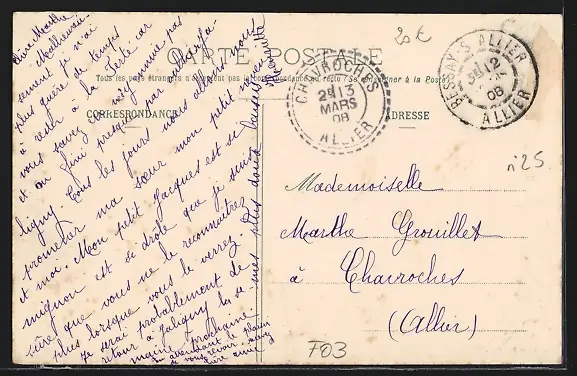 CARTE POSTALE
Tous les pays étrangers n'acceptent pas la correspondance au recto (Se renseigner à la Poste)
CORRESPONDANCE
ADRESSE
Chère Marthe
Malheureu-
sement je n'ai
plus guère de temps
à rester à la Ferté car
vous savez
et on fini presque par
ligny. Tous les jours nous allons nous
promener ma sœur mon petit neveu
et moi. Mon petit Jacques est si
mignon et si drôle que je suis
sûre que vous ne le reconnaîtrez
plus lorsque vous le verrez.
Je serai probablement de
retour à Jaligny la se-
maine prochaine
en attendant le plaisir
de vous revoir
mes plus doux
baisers
CHAVROCHES
13
MARS
08
ALLIER
BESSAY-S-ALLIER
12
08
ALLIER
20€
n°25
Mademoiselle
Marthe Grouillet
à Chavroches
(Allier)
F03